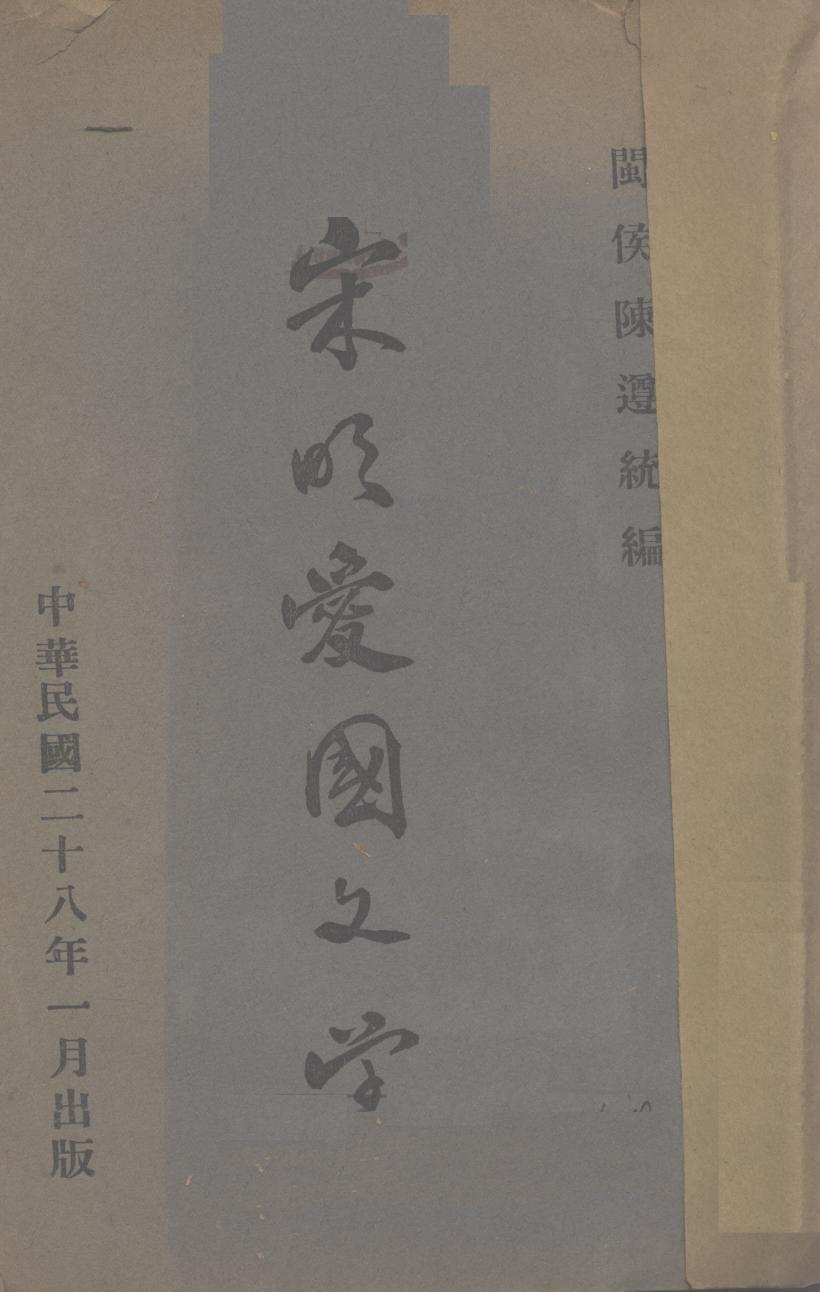 閩侯陳遵統編
宋明愛國文学
中華民國二十八年一月出版